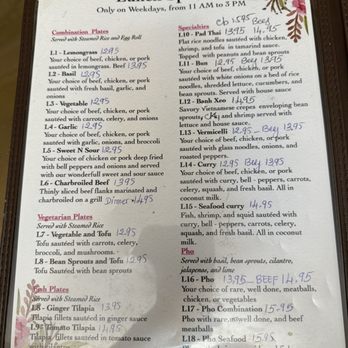 Only on Weekdays, from 11 AM to 3 PM
Combination Plates
Served with Steamed Rice and Egg Roll
L1 - Lemongrass 12.95
Your choice of beef, chicken, or pork
sautéed in lemongrass. Beef 13.95
L2 - Basil 12.95
Your choice of beef, chicken, or pork
sautéed with fresh basil, garlic, and
onions
L3 - Vegetable 12.95
Your choice of beef, chicken, or pork
sautéed with carrots, celery, and onions
L4 - Garlic 12.95
Your choice of beef, chicken, or pork
sautéed with garlic, onions, and broccoli
L5 - Sweet N Sour 12.95
Your choice of chicken or pork deep fried
with bell peppers and onions and served
with our wonderful sweet and sour sauce
L6 - Charbroiled Beef 13.95
Thinly sliced beef flanks marinated and
charbroiled on a grill Dinner 14.95
Vegetarian Plates
Served with Steamed Rice
L7 - Vegetable and Tofu 12.95
Tofu sautéed with carrots, celery,
broccoli, and mushrooms.
L8 - Bean Sprouts and Tofu 12.95
Tofu Sautéed with bean sprouts
Fish Plates
Served with Steamed Rice
L8 - Ginger Tilapia 13.95
Tilapia fillets sautéed in ginger sauce
L9 - Tomato Tilapia 14.95
Tilapia fillets sautéed in tomato sauce
Specialties
L10 - Pad Thai 13.95 14.95
Flat rice noodles sautéed with chicken,
shrimp, and tofu in tamarind sauce.
Topped with peanuts and bean sprouts
L11 - Bun 12.95 Beef 13.95
Your choice of beef, chicken, or pork
sautéed with white onions on a bed of rice
noodles, shredded lettuce, cucumbers, and
bean sprouts. Served with house sauce
L12 - Banh Xeo 14.95
Savory Vietnamese crepes enveloping bean
sprouts, and shrimp served with
lettuce and house sauce.
L13 - Vermicelli 12.95 - Beef 13.95
Your choice of beef, chicken, or pork
sautéed with glass noodles, onions, and
roasted peppers.
L14 - Curry 12.95 Beef 13.95
Your choice of beef, chicken, or pork
sautéed with curry, bell - peppers, carrots,
celery, squash, and fresh basil. All in
coconut milk.
L15 - Seafood curry 14.95
Fish, shrimp, and squid sautéed with
curry, bell - peppers, carrots, celery,
squash, and fresh basil. All in coconut
milk.
Pho
Served with basil, bean sprouts, cilantro,
jalapenos, and lime
L16 - Pho 13.95 - BEEF 14.95
Your choice of rare, well done, meatballs,
chicken, or vegetables
L17 - Pho Combination 15.95
Pho with rare, well done, and beef
meatballs
L18 - Pho Seafood 15.95